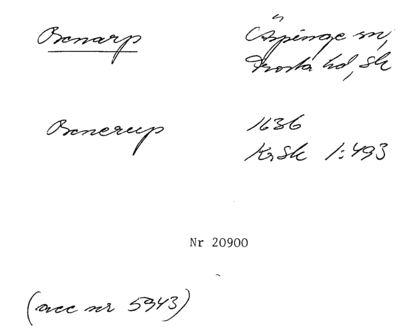 Benarp Äspinge sn,
Frosta hd, Sk
Benerup 1636
KrSk 1:493
Nr 20900
(acc nr 5943)